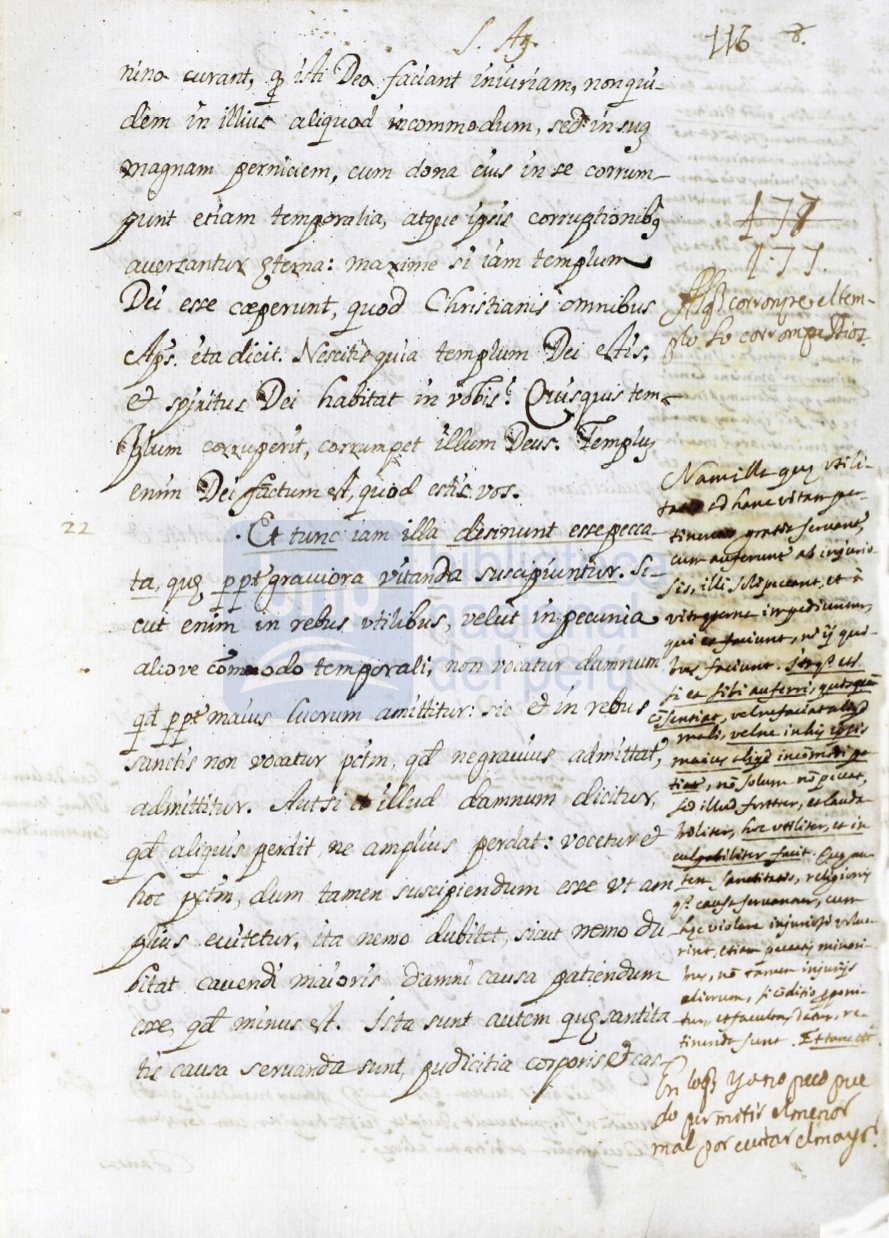 S. Ag.
116 8.
nino curant, q isti Deo faciant iniuriam, non qui-
dem in illius aliquod incommodum, sed in suã
magnam perniciem, cum dona eius in se corrum-
punt etiam temporalia, atque ipsis corruptionibꝰ
auersantur ęterna: maxime si iam templum
Dei esse cœperunt, quod Christianis omnibus
Aps. ita dicit. Nescitis quia templum Dei estis,
et spiritus Dei habitat in vobis? Quisquis tem-
plum corruperit, corrumpet illum Deus. Templũ
enim Dei factum est, quod estis vos.
22
Et tunc iam illa desinunt esse pecca-
ta, quę ppt graviora vitanda suscipiuntur. Si-
cut enim in rebus vtilibus, velut in pecunia
aliove commodo temporali, non vocatur damnum
qđ ppt maius lucrum amittitur: sic et in rebus
sanctis non vocatur pctm, qđ ne gravius admittat,
admittitur. Aut si et illud damnum dicitur,
qđ aliquis perdit, ne amplius perdat: vocetur et
hoc pctm, dum tamen suscipiendum esse vt am
plius euitetur, ita nemo dubitet, sicut nemo du
bitat cauendi maioris damni causa patiendum
esse, qđ minus est. Ista sunt autem quę santita
tis causa servanda sunt, pudicitia corporis et cas-
178
177.
Al q corrompre el tem-
plo lo corrompe Dios.
Nam illa quę vtili-
tatis ad hanc vitam per-
tinent, gratia servant,
cum auferunt ab injurio-
sis, illi soli peccant, et
impediuntur,
qui faciunt, nõ ij qui-
bus faciunt. Itaqꝫ etsi
si ea sibi auferri, quisquam
cõsentiat, vel ne faciat aliqd
mali, vel ne in his ipsis
maius aliqd incõmodi pa-
tiar, nõ solum nõ peccat,
sed illud fortiter, et lauda-
biliter, hoc vtiliter, et in-
culpabiliter facit. Quę au-
tem sanctitatis, religionis
q causa servantur, cum
hęc violare injuriosi volue-
rint, etiam peccatis minori-
bus, nõ tamen injurijs
aliorum, si cõditio proponi-
tur, et facultas datur, re-
timenda sunt. Et tunc etc.
En loq Yo no peco pue
do permitir el menor
mal por euitar el mayr?